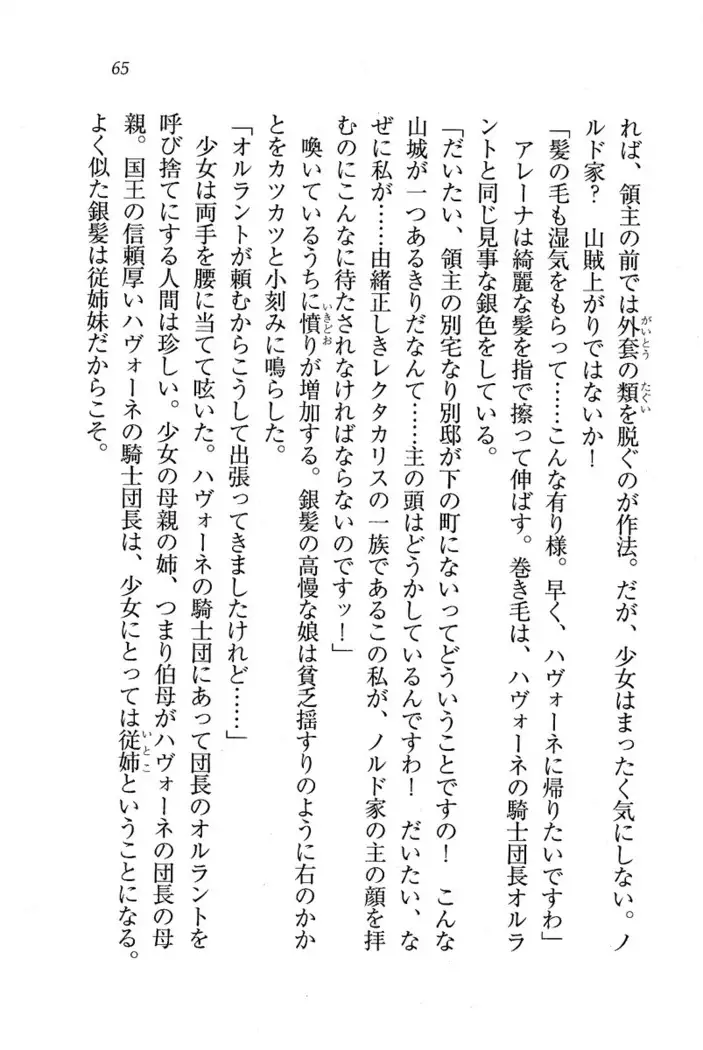 65
れば、領主の前では外套の類を脱ぐのが作法。だが、少女はまったく気にしない。ノ
ルド家？　山賊上がりではないか！
「髪の毛も湿気をもらって……こんな有り様。早く、ハヴォーネに帰りたいですわ」
アレーナは綺麗な髪を指で擦って伸ばす。巻き毛は、ハヴォーネの騎士団長オルラ
ントと同じ見事な銀色をしている。
「だいたい、領主の別宅なり別邸が下の町にないってどういうことですの！　こんな
山城が一つあるきりだなんて……主の頭はどうかしているんですわ！　だいたい、な
ぜに私が……由緒正しきレクタカリスの一族であるこの私が、ノルド家の主の顔を拝
むのにこんなに待たされなければならないのですッ！」
喚いているうちに憤りが増加する。銀髪の高慢な娘は貧乏揺すりのように右のかか
とをカツカツと小刻みに鳴らした。
「オルラントが頼むからこうして出張ってきましたけれど……」
少女は両手を腰に当てて呟いた。ハヴォーネの騎士団にあって団長のオルラントを
呼び捨てにする人間は珍しい。少女の母親の姉、つまり伯母がハヴォーネの団長の母
親。国王の信頼厚いハヴォーネの騎士団長は、少女にとっては従姉ということになる。
よく似た銀髪は従姉妹だからこそ。
がいとう
たぐい
いきどお
いとこ